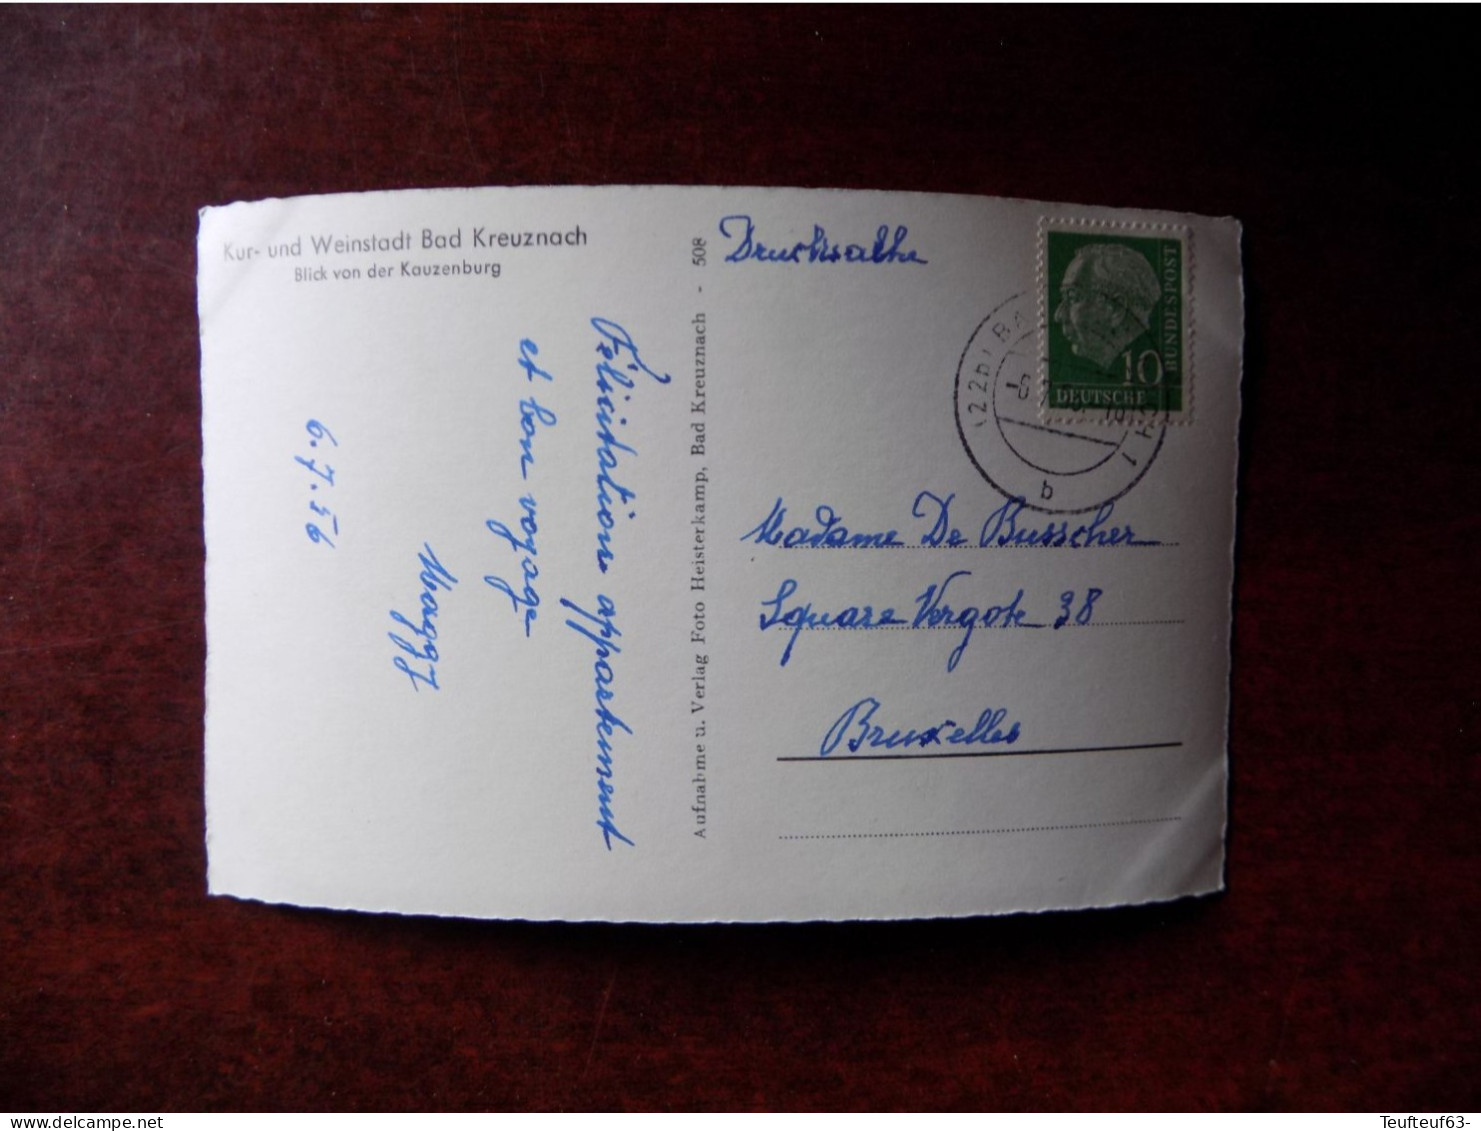 Kur- und Weinstadt Bad Kreuznach
Blick von der Kauzenburg
Félicitations appartement
et bon voyage
Maggy
6.7.56
Aufnahme u. Verlag Foto Heisterkamp, Bad Kreuznach - 508
Drucksache
10
DEUTSCHE
BUNDESPOST
(22b) BA
b
Madame De Busscher
Square Vergote 38
Bruxelles
www.delcampe.net
Teufteuf63-